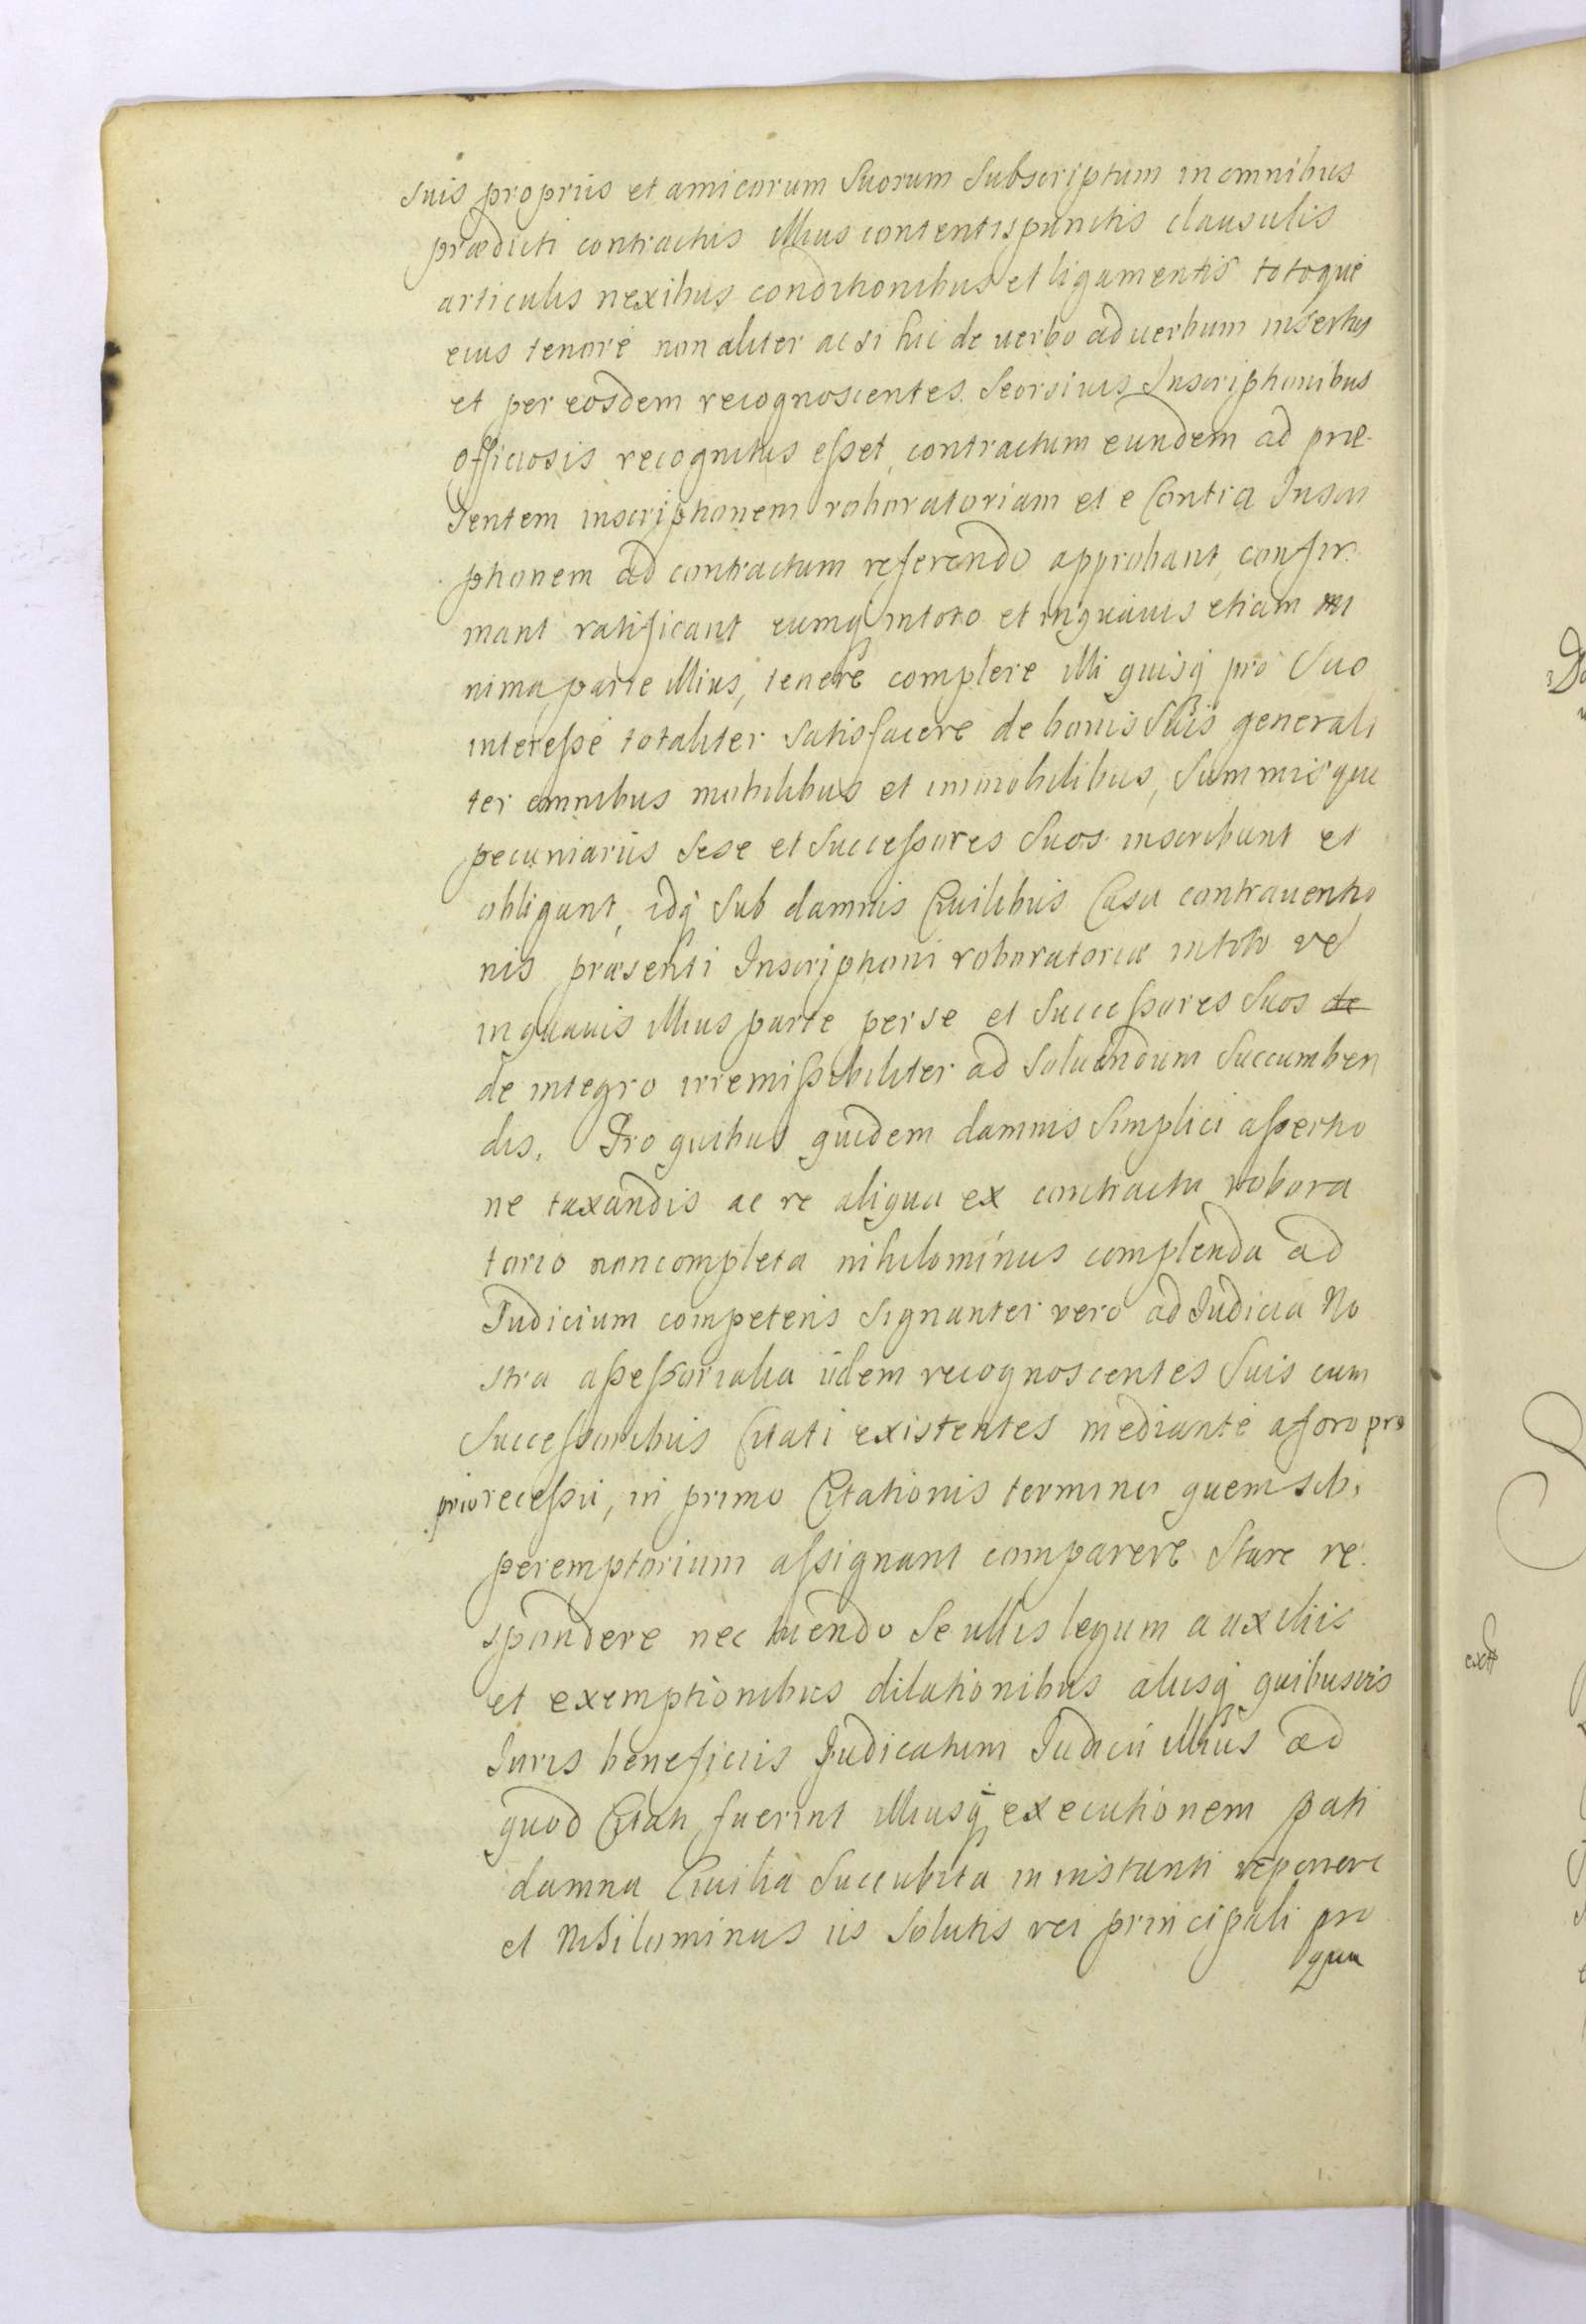 suis proprijs et amicorum Suorum Subscriptum in omnibus
prædicti contractus illius contentis punctis clausulis
articulis nexibus conditionibus et ligamentis totoque
eius tenore non aliter ac si hic de verbo ad uerbum insertus
et per eosdem recognoscentes Seorsiuis Inscriptionibus
officiosis recognitus esset, contractum eundem ad præ-
sentem inscriptionem roboratoriam et e Contra Inscri
ptionem ad contractum referendo approbant, confir-
mant ratificant eumq in toto et in quauis etiam mi
nima parte illius, tenere complere illi quisq pro Suo
interesse totaliter Satisfacere de bonis Suis generali
ter omnibus mobilibus et immobilibus, Summisque
pecuniarijs Sese et Successores Suos inscribunt et
obligant, idq Sub damnis Ciuilibus Casu contrauentio
nis præsenti Inscriptioni roboratoriæ in toto vel
in quauis illius parte per se et Successores Suos de
de integro irremissibiliter ad Soluendum Succumben
dis. Pro quibus quidem damnis Simplici assertio
ne taxandis ac re aliqua ex contractu robora
torio non completa nihilominus complenda ad
Iudicium competens Signanter vero ad Iudicia No
stra assessorialia ijdem recognoscentes Suis cum
Successoribus Citati existentes mediante a foro pro
prio recessu, in primo Citationis termino quem sibi
peremptorium assignant comparere Stare re
spondere nec tuendo Se ullis legum auxiliis
et exemptionibus dilationibus alijsq quibusvis
Iuris beneficiis Iudicatum Iudicii illius ad
quod Citati fuerint illiusq executionem pati
damna Ciuilia Succubita in instanti reponere
et Nihilominus iis Solutis rei principali pro
qua